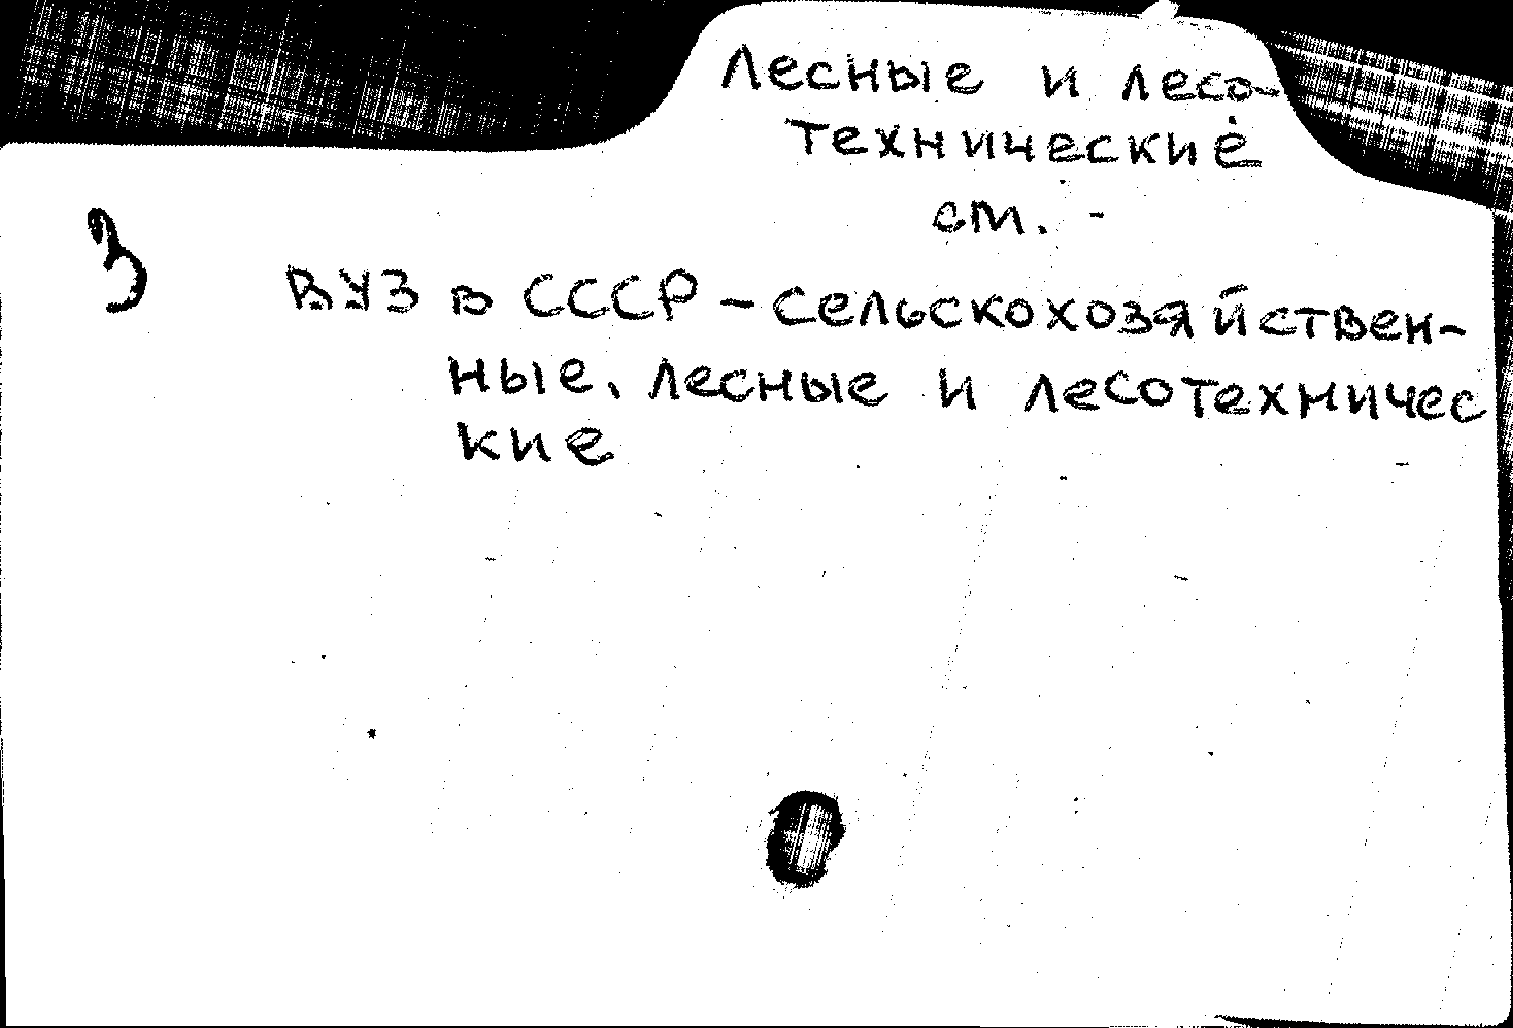 Лесные и лесо-
технические
ст. -
3
ВУЗ в СССР - сельскохозяйствен-
ные, лесные и лесотехничес
кие